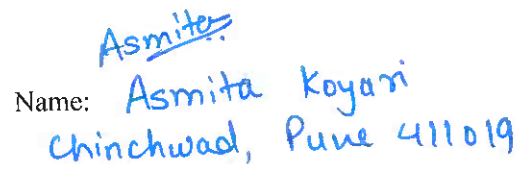 Asmita
Name: Asmita Koyari
Chinchwad, Pune 411019